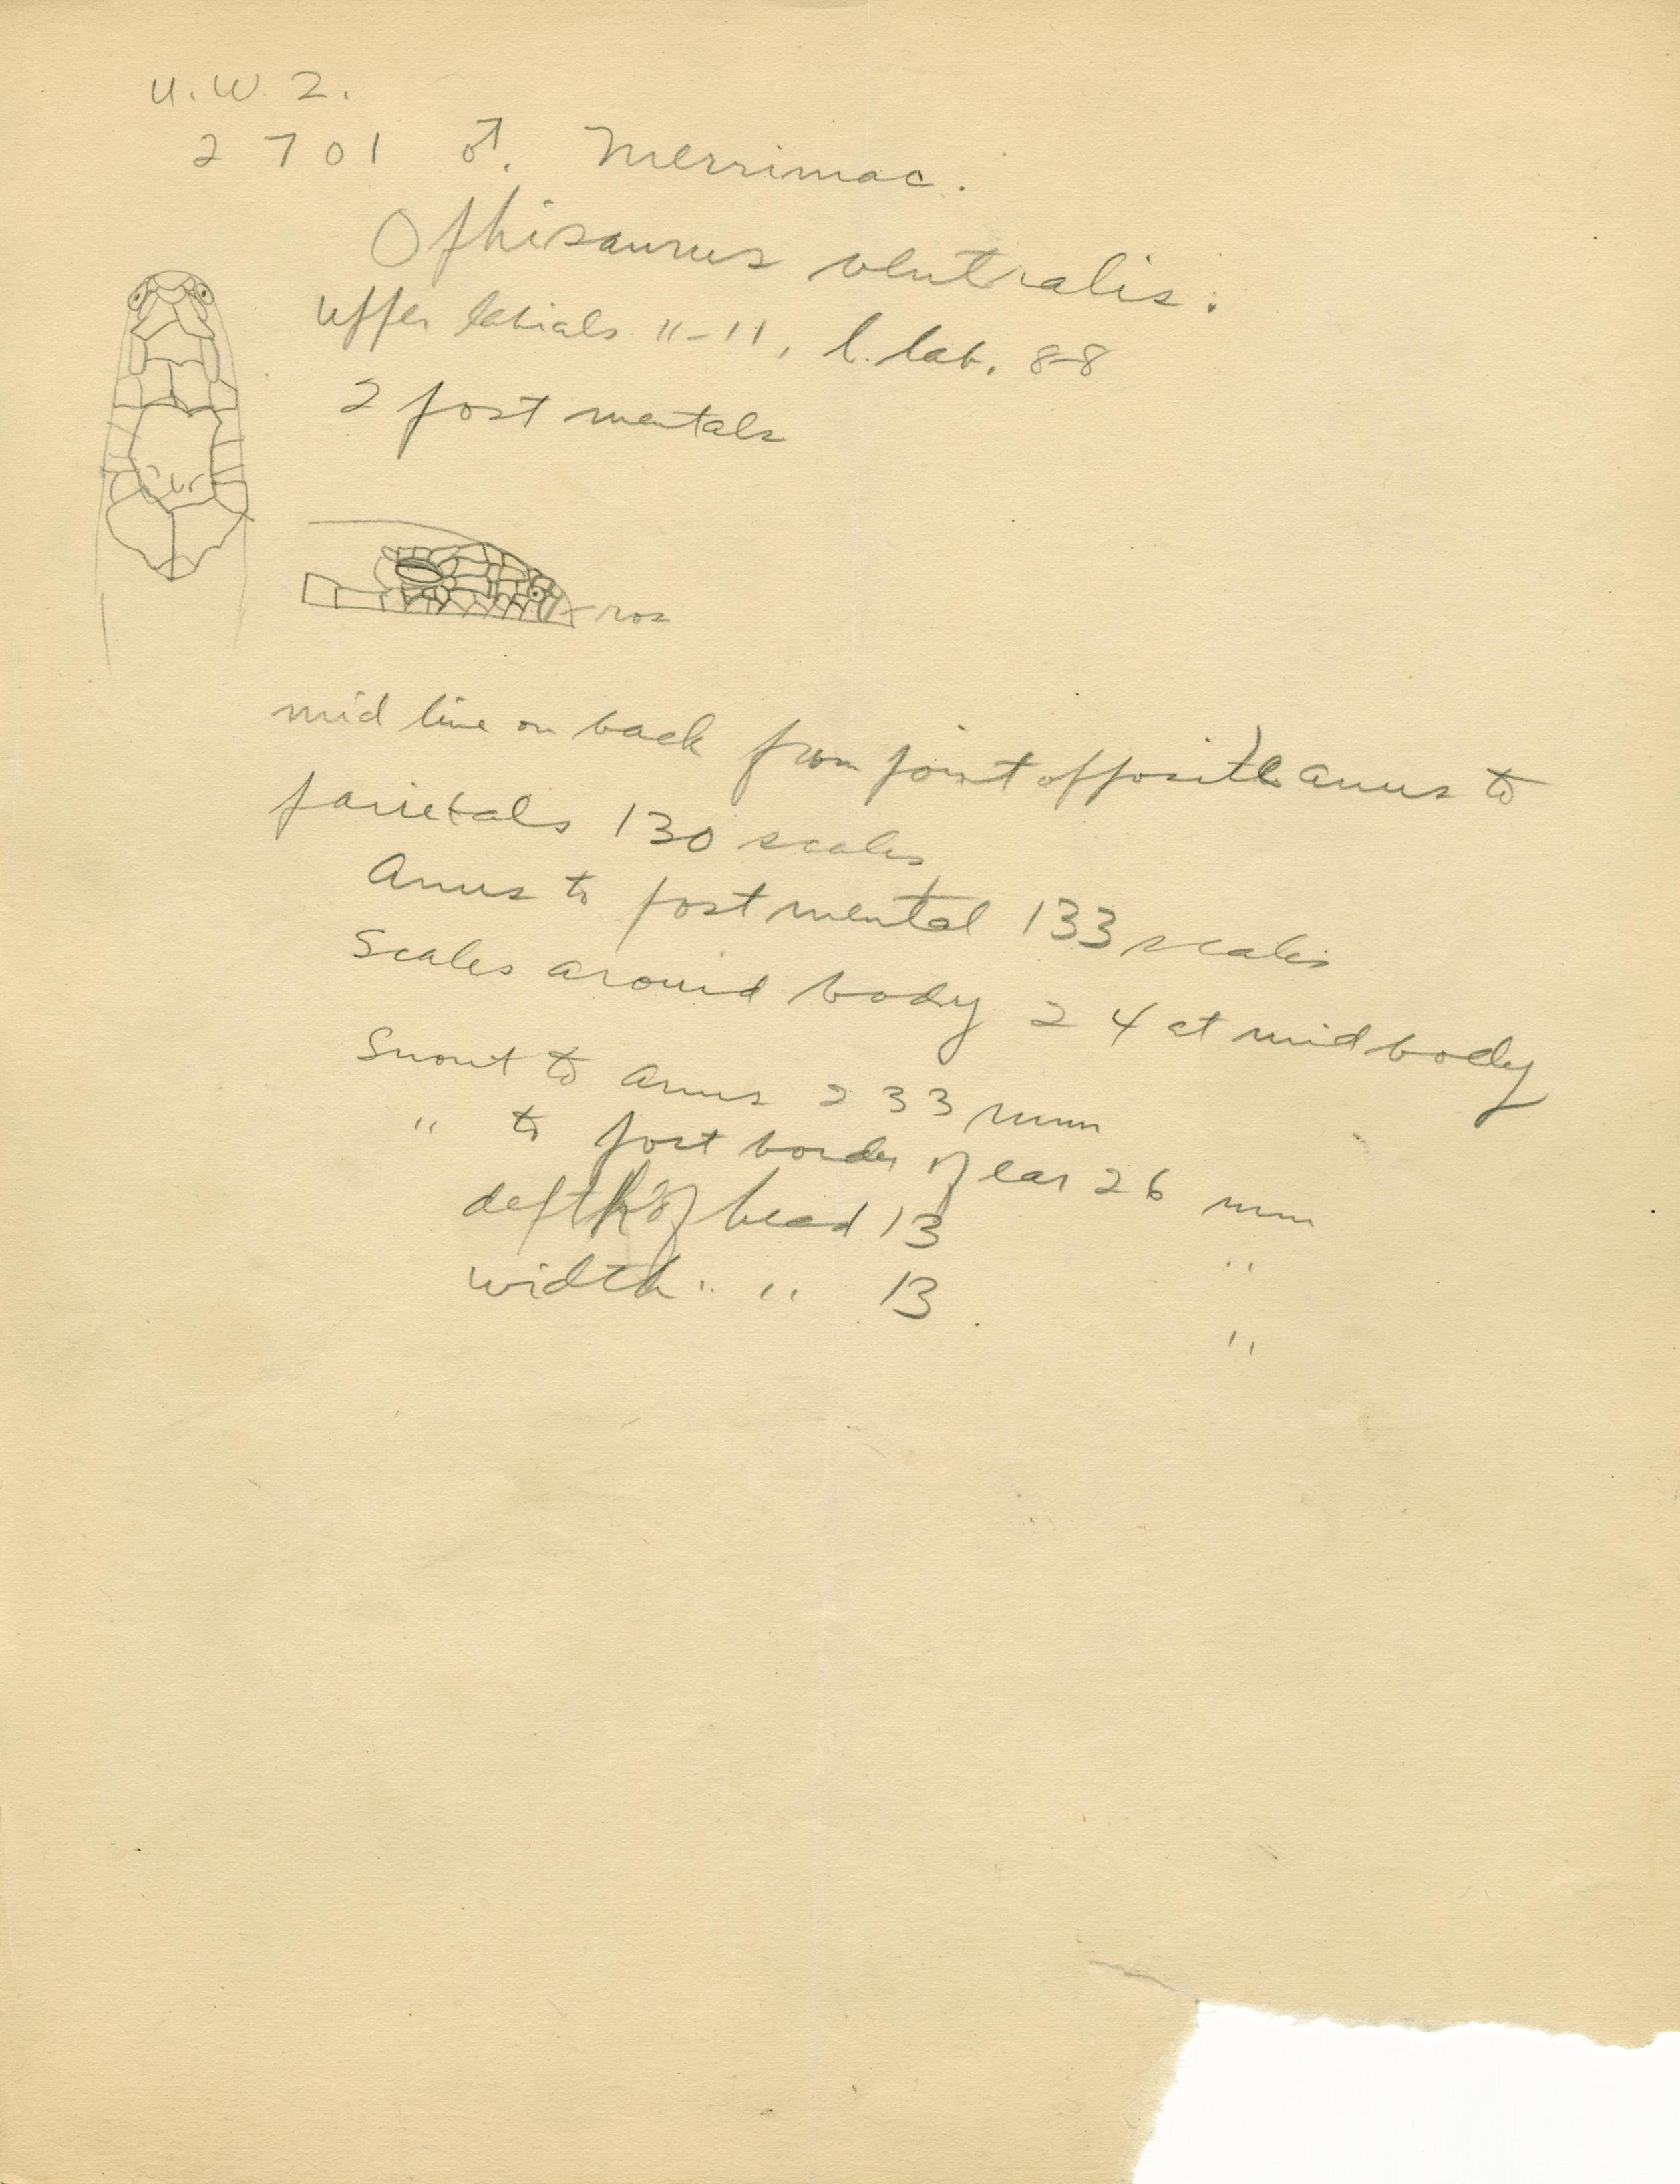 U.W.Z.
2701 ♂. Merrimac.
Ophisaurus ventralis.
upper labials 11-11, l. lab. 8-8
2 post mentals
ros
mid line on back from point opposite anus to
parietals 130 scales
Anus to postmental 133 scales
Scales around body 24 at midbody
Snout to anus 233 mm
" to post border of ear 26 mm
depth of head 13 "
width " " 13 "